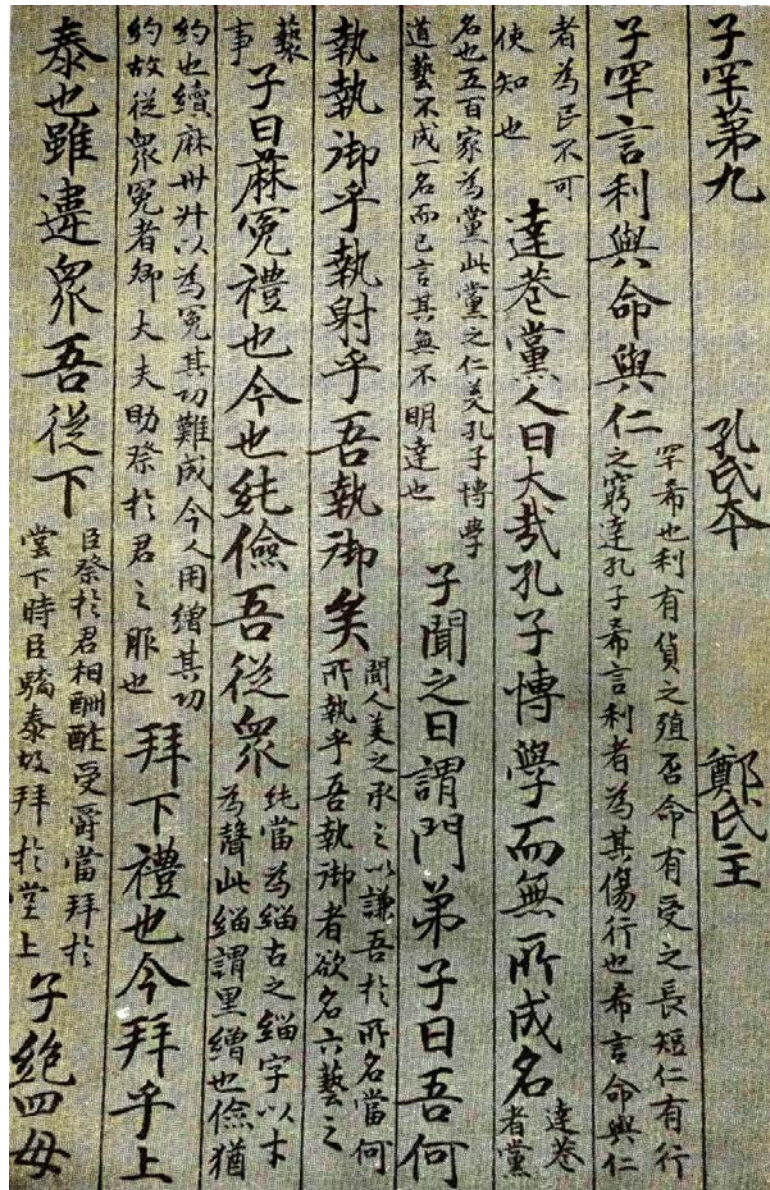 子罕第九 孔氏本 鄭氏主
子罕言利與命與仁 罕希也利有貨之殖否命有受之長短仁有行
之窮達孔子希言利者為其傷行也希言命與仁
者為民不可
使知也 達巷黨人曰大哉孔子博學而無所成名 達巷
者黨
名也五百家為黨此黨之仁美孔子博學
道藝不成一名而已言其無不明達也 子聞之曰謂門弟子曰吾何
執執御乎執射乎吾執御矣 聞人美之承之以謙吾於所名當何
所執乎吾執御者欲名六藝之
藝
事 子曰麻冕禮也今也純儉吾從眾 純當為緇古之緇字以才
為聲此緇謂黑繒也儉猶
約也續麻卅升以為冕其功難成今人用繒其功
約故從眾冕者卿大夫助祭於君之服也 拜下禮也今拜乎上
泰也雖違眾吾從下 臣祭於君相酬酢受爵當拜於
堂下時臣驕泰故拜於堂上 子絕四毋